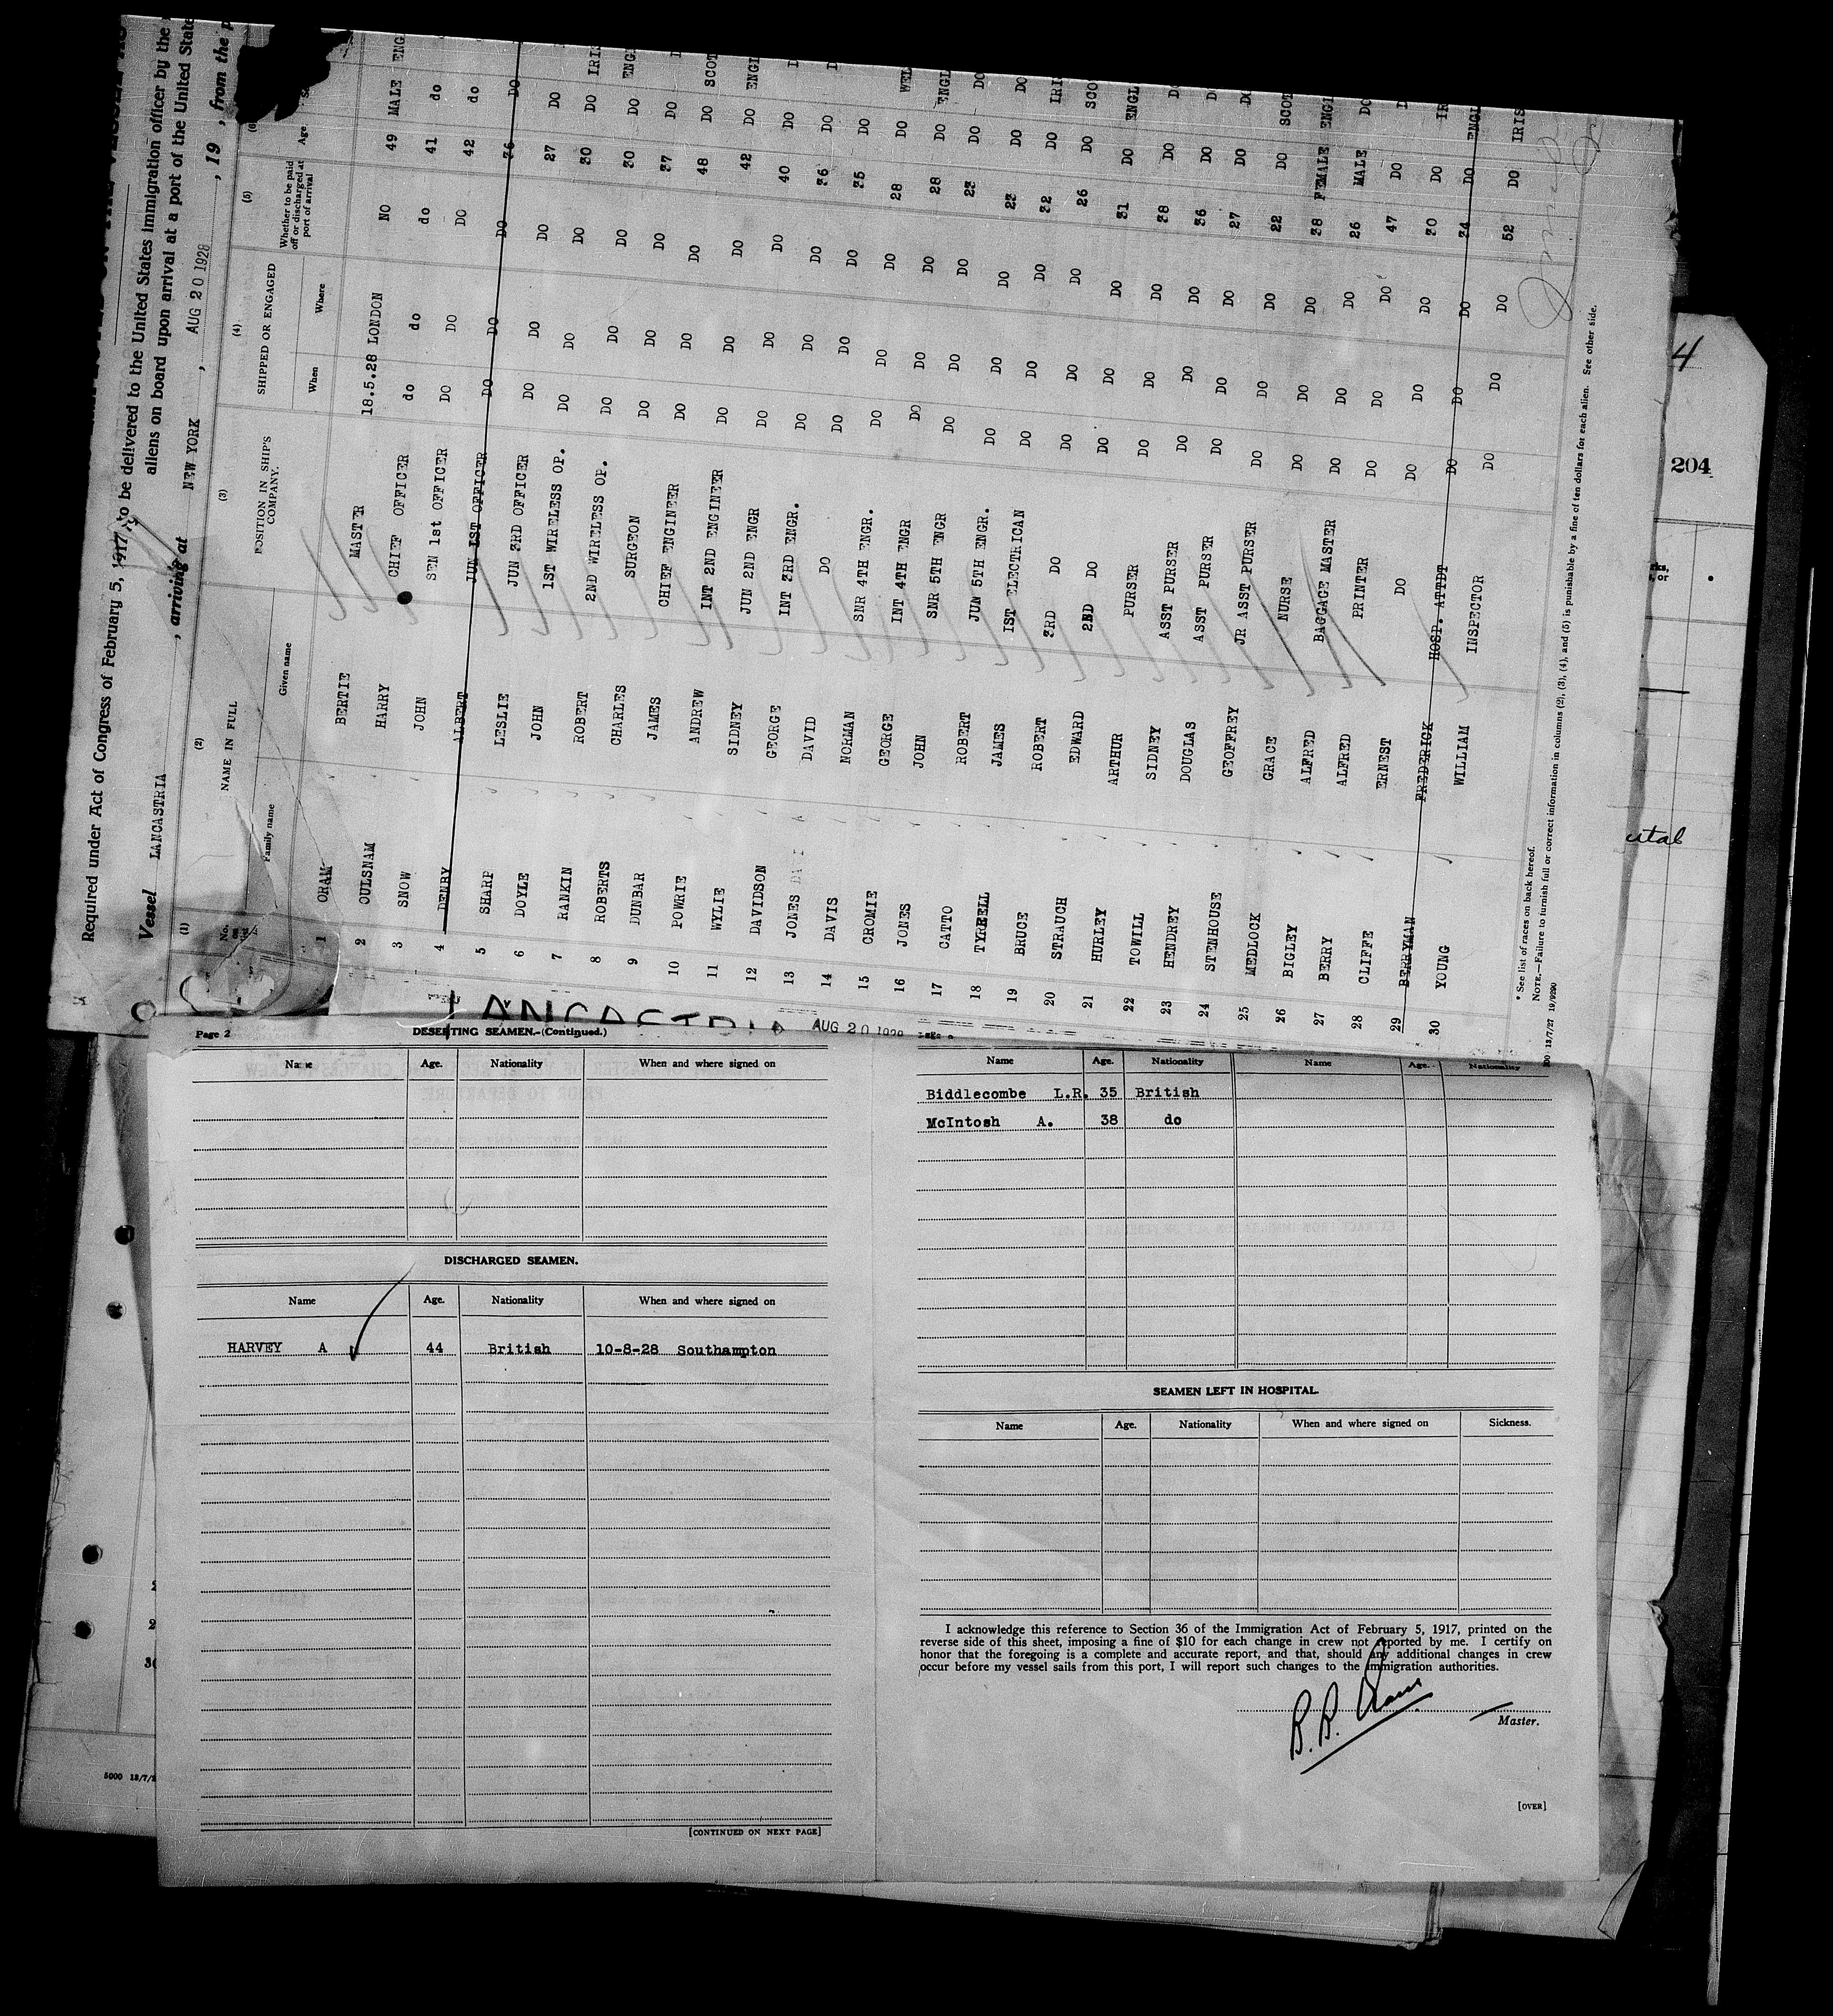 Required under Act of Congress of February 5, 1917, to be delivered to the United States immigration officer by the
aliens on board upon arrival at a port of the United State
Vessel LANCASTRIA , arriving at NEW YORK , AUG 20 1928 , 19 , from the p
(1) (2) (3) (4) (5)
No. NAME IN FULL POSITION IN SHIP'S COMPANY. SHIPPED OR ENGAGED Whether to be paid off or discharged at port of arrival Age
Family name Given name When Where
1 ORAM BERTIE MASTER 18.5.28 LONDON NO 49 MALE ENG
2 OULSNAM HARRY CHIEF OFFICER do do do 41 do
3 SNOW JOHN SEN 1st OFFICER DO DO DO 42 do
4 DENBY ALBERT JUN 1ST OFFICER DO DO DO 36 DO
5 SHARP LESLIE JUN 3RD OFFICER DO DO DO 27 DO
6 DOYLE JOHN 1ST WIRELESS OP. DO DO DO 30 DO IRIS
7 RANKIN ROBERT 2ND WIRELESS OP. DO DO DO 30 DO ENGL
8 ROBERTS CHARLES SURGEON DO DO DO 37 DO
9 DUNBAR JAMES CHIEF ENGINEER DO DO DO 48 DO SCOT
10 POWRIE ANDREW INT 2ND ENGINEER DO DO DO 42 DO ENGL
11 WYLIE SIDNEY JUN 2ND ENGR DO DO DO 40 DO
12 DAVIDSON GEORGE INT 3RD ENGR. DO DO DO 36 DO
13 JONES DAVID DO DO DO DO 35 DO
14 DAVIS NORMAN SNR 4TH ENGR. DO DO DO 28 DO WEL
15 CROMIE GEORGE INT 4TH ENGR DO DO DO 28 DO ENGL
16 JONES JOHN SNR 5TH ENGR DO DO DO DO DO
17 CATTO ROBERT JUN 5TH ENGR. DO DO DO DO DO
18 TYRRELL JAMES 1ST ELECTRICAN DO DO DO 32 DO IRI
19 BRUCE ROBERT 3RD DO DO DO DO 26 DO SCO
20 STRAUCH EDWARD 2ND DO DO DO DO 31 DO ENGL
21 HURLEY ARTHUR PURSER DO DO DO 38 DO
22 TOWILL SIDNEY ASST PURSER DO DO DO 36 DO
23 HENDREY DOUGLAS ASST PURSER DO DO DO 27 DO
24 STENHOUSE GEOFFREY JR ASST PURSER DO DO DO 22 DO SCOT
25 MEDLOCK GRACE NURSE DO DO DO 38 FEMALE ENGL
26 BIGLEY ALFRED BAGGAGE MASTER DO DO DO 26 MALE DO
27 BERRY ALFRED PRINTER DO DO DO 47 DO
28 CLIFFE ERNEST DO DO DO DO 30 DO IR
29 BERRYMAN FREDERICK HOSP. ATTDT DO DO DO 34 DO ENGL
30 YOUNG WILLIAM INSPECTOR DO DO DO 52 DO IRIS
* See list of races on back hereof.
NOTE.—Failure to furnish full or correct information in columns (2), (3), (4), and (5) is punishable by a fine of ten dollars for each alien. See other side.
13/7/27 19/9290
4
204
LANCASTRIA AUG 20 1928
Page 2 DESERTING SEAMEN.-(Continued.)
Name Age. Nationality When and where signed on
DISCHARGED SEAMEN.
Name Age. Nationality When and where signed on
HARVEY A 44 British 10-8-28 Southampton
[CONTINUED ON NEXT PAGE]
Name Age. Nationality Name Age. Nationality
Biddlecombe L.R. 35 British
McIntosh A. 38 do
SEAMEN LEFT IN HOSPITAL.
Name Age. Nationality When and where signed on Sickness.
I acknowledge this reference to Section 36 of the Immigration Act of February 5, 1917, printed on the
reverse side of this sheet, imposing a fine of $10 for each change in crew not reported by me. I certify on
honor that the foregoing is a complete and accurate report, and that, should any additional changes in crew
occur before my vessel sails from this port, I will report such changes to the immigration authorities.
B. B. Oram
Master.
[OVER]
5000 13/7/2